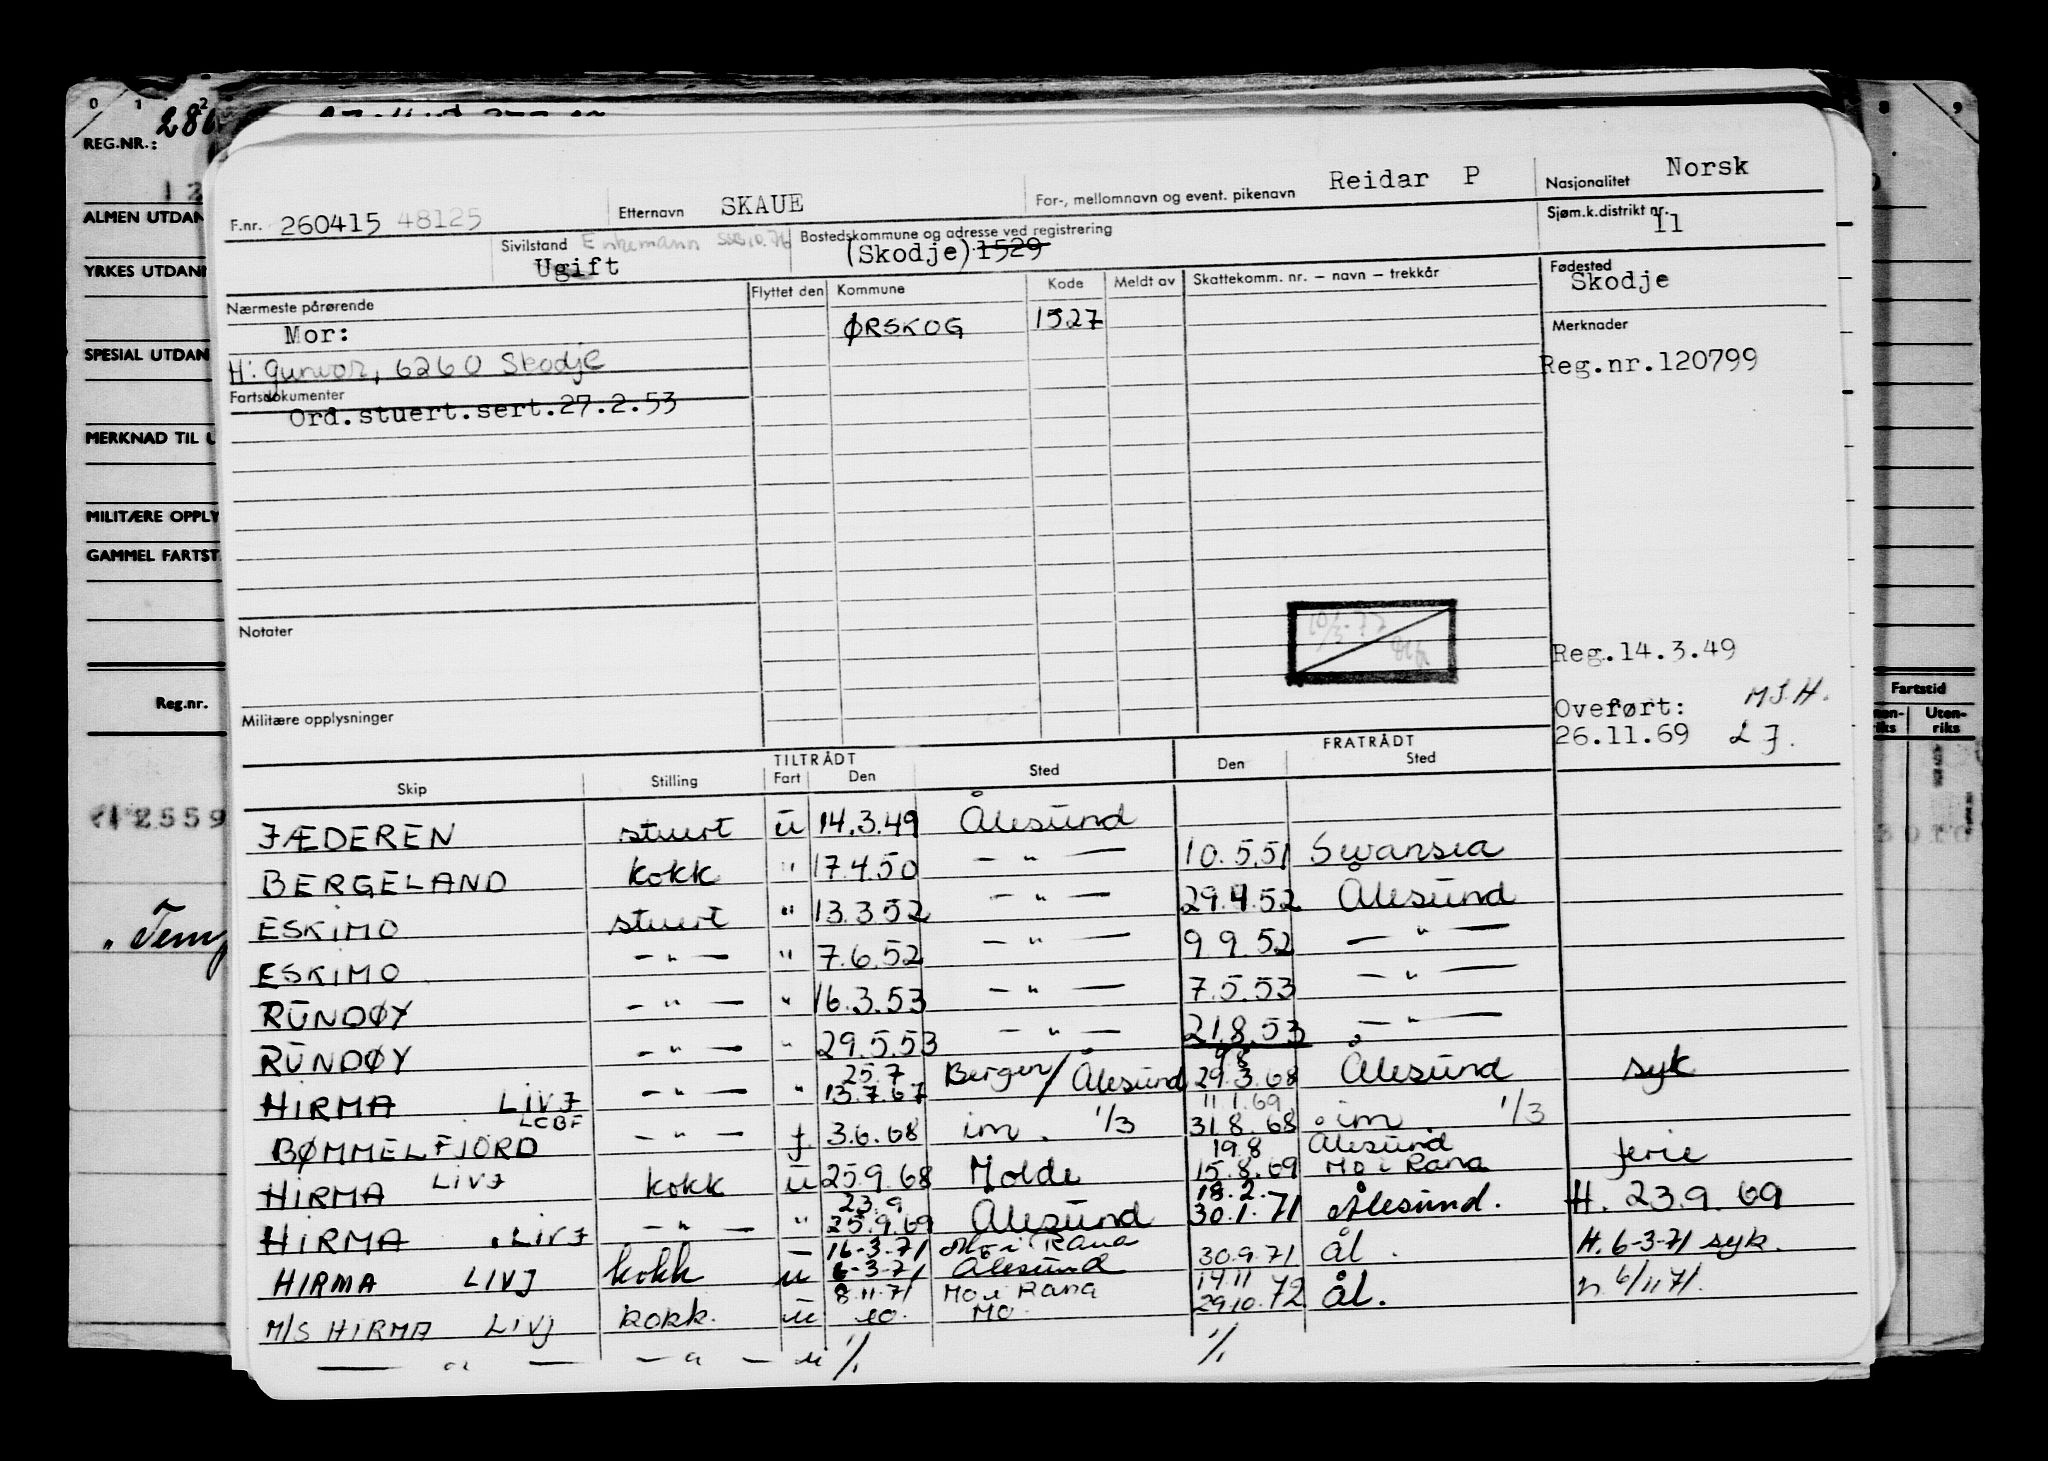 0 1 2 8 9
REG.NR.: 280
12
ALMEN UTDAN
YRKES UTDANN
SPESIAL UTDAN
MERKNAD TIL U
MILITÆRE OPPLY
GAMMEL FARTST
Reg.nr.
12559
"Temp
Fartstid
Uten-
riks
F.nr. 260415 48125 Etternavn SKAUE For-, mellomnavn og event. pikenavn Reidar P Nasjonalitet Norsk
Sivilstand Enkemann Ugift Bostedskommune og adresse ved registrering (Skodje) 1529 Sjøm.k.distrikt nr. 11
Nærmeste pårørende Flyttet den Kommune Kode Meldt av Skattekomm. nr. – navn – trekkår Fødested Skodje
Mor: ØRSKOG 1527 Merknader
H: Gunvor, 6260 Skodje Reg.nr.120799
Fartsdokumenter
Ord.stuert.sert.27.2.53
Notater
Reg.14.3.49
Militære opplysninger
Overført: M.J.H.
26.11.69 LJ.
TILTRÅDT FRATRÅDT
Skip Stilling Fart Den Sted Den Sted
JÆDEREN stuert u 14.3.49 Ålesund
BERGELAND kokk " 17.4.50 — " — 10.5.51 Swansea
ESKIMO stuert " 13.3.52 — " — 29.4.52 Ålesund
ESKIMO — " — " 7.6.52 — " — 9.9.52 — " —
RUNDØY — " — " 16.3.53 — " — 7.5.53 — " —
RUNDØY — " — " 29.5.53 — " — 21.8.53 — " —
HIRMA LIVJ — " — " 25.7 13.7.67 Bergen/Ålesund 29.3.68 Ålesund syk
BØMMELFJORD LCBF — " — f 3.6.68 im. 1/3 11.1.69 31.8.68 im 1/3
HIRMA LIVJ kokk u 25.9.68 Molde 19.8 15.8.69 Ålesund Mo i Rana ferie
HIRMA LIVJ — " — " 23.9 25.9.69 Ålesund 18.2. 30.1.71 Ålesund. H. 23.9.69
HIRMA LIVJ kokk u 16-3-71 6-3-71 Mo i Rana Ålesund 30.9.71 Ål. H. 6-3-71 syk.
M/S HIRMA LIVJ kokk. u 8.11.71 10. Mo i Rana Mo 14.11 29.10.72 Ål. 6/11 71.
— " — — " — u 1/1 1/1